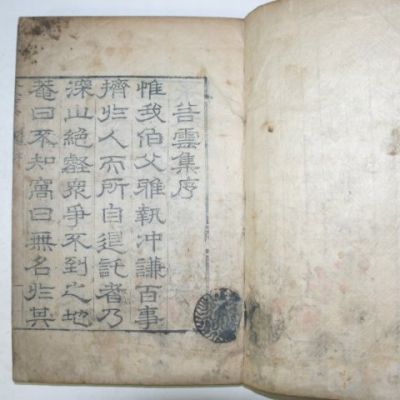 苔雲集序
惟我伯父雅執冲謙百事
擠於人而所自退託者乃
深山絶壑衆爭不到之地
菴曰不知窩曰無名於其